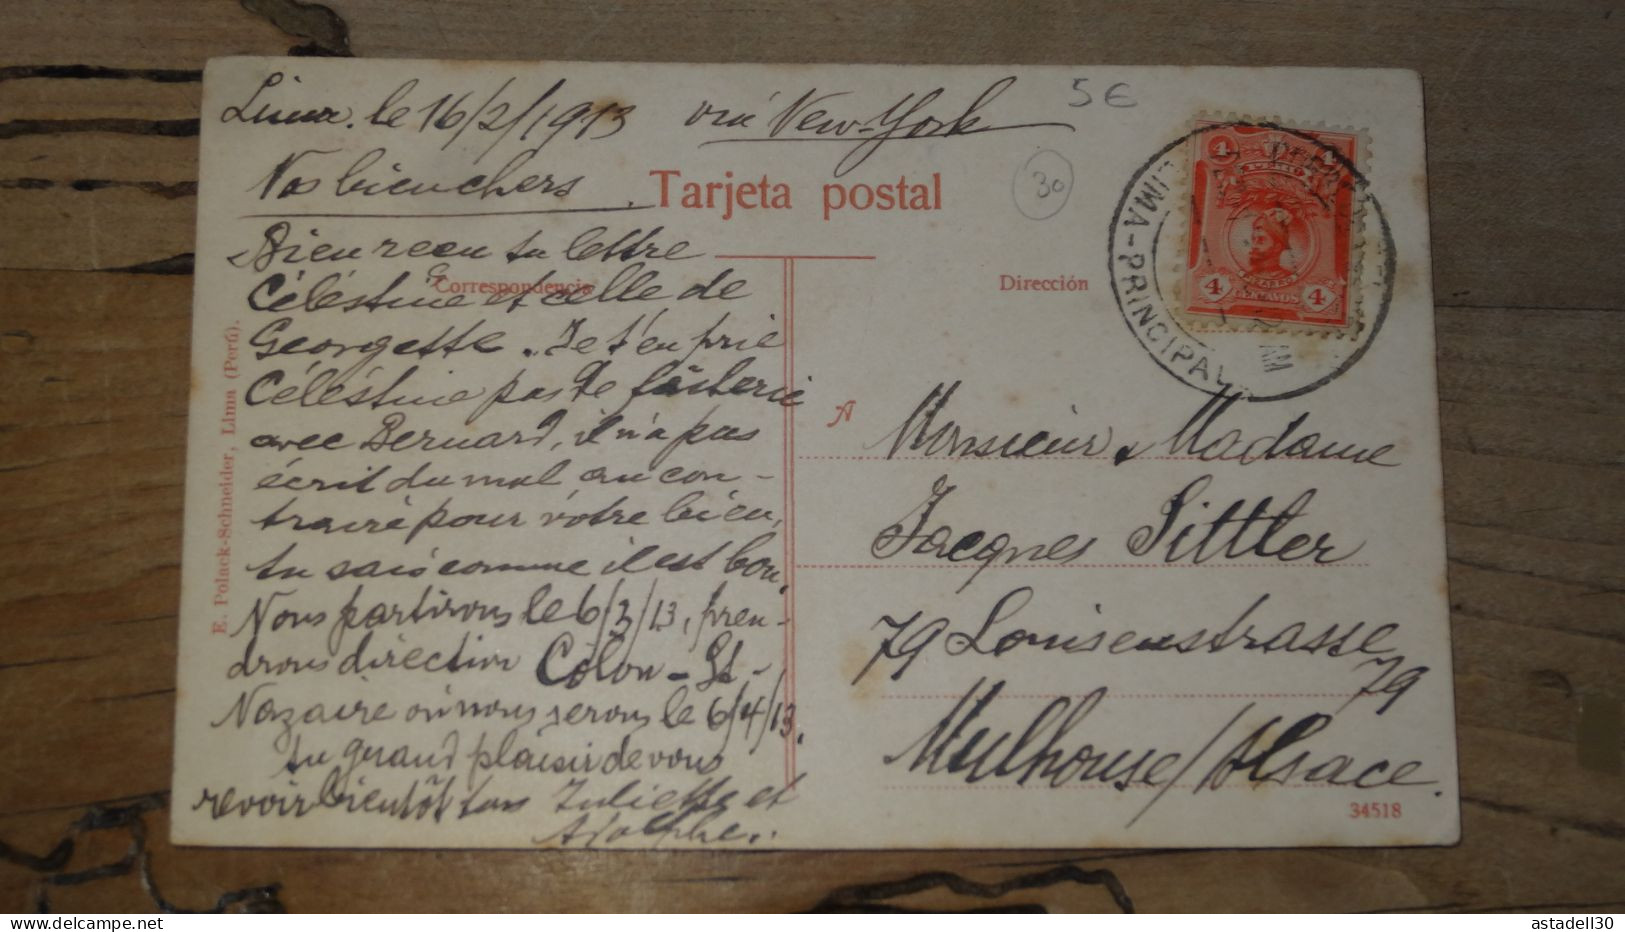 Lima. le 16/2/1913 via New-York
5€
30
Nos bien chers
Tarjeta postal
Bien reçu ta lettre
Célestine et celle de
Georgette. Je t'en prie
Célestine pas de
avec Bernard, il n'a pas
écrit du mal au con-
traire pour vôtre bien,
tu sais comme il est bon.
Nous partirons le 6/3/13, pren-
drons direction Colon - St.-
Nazaire où nous serons le 6/4/13.
au grand plaisir de vous
revoir bientôt Juliette et
Adolphe.
Correspondencia
Dirección
E. Polack-Schneider, Lima (Perú).
4 4
4 CENTAVOS 4
LIMA-PRINCIPAL
AM
A Monsieur & Madame
Jacques Sittler
79 Louisenstrasse
79
Mulhouse/Alsace.
34518
astadell30